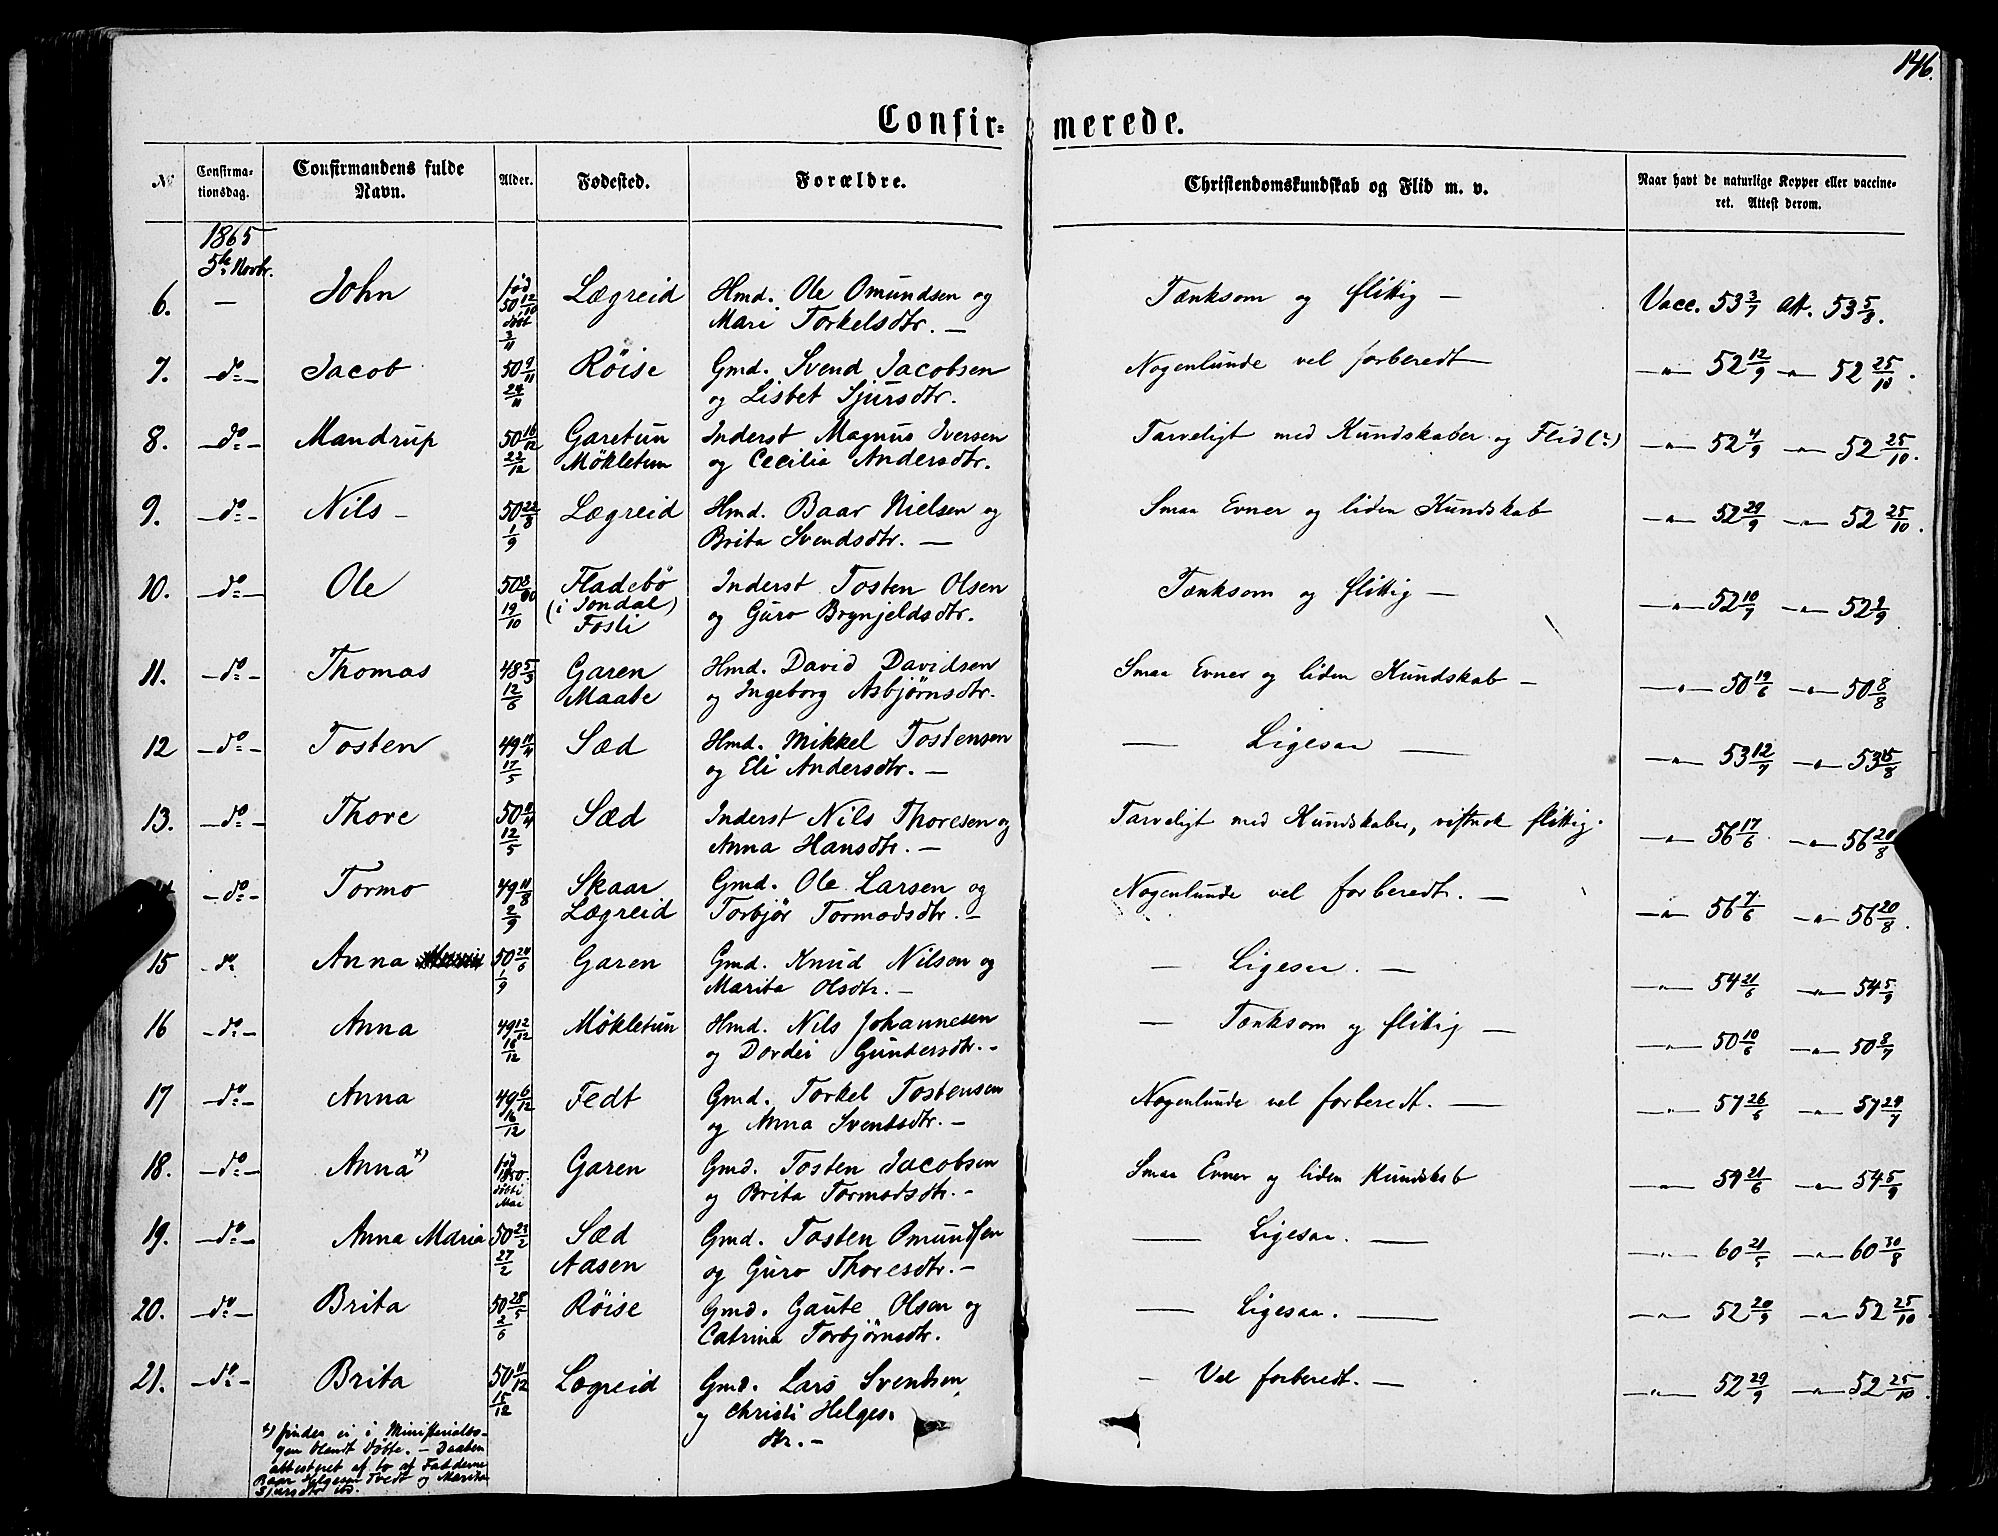 146.
Confirmerede.
№ Confirmationsdag. Confirmandens fulde Navn. Alder. Fødested. Forældre. Christendomskundskab og Flid m. v. Naar havt de naturlige Kopper eller vaccineret. Attest derom.
1865
5te Novbr.
6. — John fød 50 12/10 døbt 3/11 Lægreid Hmd. Ole Omundsen og Tænksom og flittig — Vacc. 53 3/7 Att. 53 5/8.
Mari Torkelsdtr. —
7. — do — Jacob 50 9/11 24/11 Røise Gmd. Svend Jacobsen Nogenlunde vel forberedt — — " — 52 12/9 — " — 52 25/10.
og Lisbet Sjursdtr.
8. — do — Mandrup 50 16/12 22/12 Garetun Inderst Magnus Iversen Tarveligt med Kundskaber og Flid (:) — " — 52 4/9 — " — 52 25/10.
Møkletun og Cecilia Andersdtr.
9. — do — Nils — 50 22/8 1/9 Lægreid Hmd. Baar Nielsen og Smaa Evner og liden Kundskab — " — 52 29/9 — " — 52 25/10.
Brita Svendsdtr. —
10. — do — Ole 50 19/10 Fladebø Inderst Tosten Olsen Tænksom og flittig — — " — 52 10/7 — " — 52 2/9
(i Jondal) og Guro Brynjeldsdtr.
Fosli
11. — do — Thomas 48 5/3 12/6 Garen Hmd. David Davidsen Smaa Evner og liden Kundskab — — " — 50 19/6 — " — 50 8/8
Maabe og Ingeborg Asbjørnsdtr.
12 — do — Tosten 49 17/5 Sæd Hmd. Mikkel Tostensen — Ligesaa — — " — 53 12/7 — " — 53 15/8
og Eli Andersdtr. —
13. — do — Thore 50 12/5 Sæd Inderst Nils Thoresen og Tarveligt med Kundskaber, vistnok flittig. — " — 56 17/6 — " — 56 20/8
Anna Hansdtr. —
— do — Tormo 49 11/8 2/9 Skaar Gmd. Ole Larsen og Nogenlunde vel forberedt. — — " — 56 7/6 — " — 56 20/8.
Lægreid Torbjør Tormodsdtr. —
15 — do Anna 50 24/6 1/9 Garen Gmd. Knud Nilsen og — Ligesaa. — — " — 54 21/6 — " — 54 5/9
Marita Olsdtr. —
16 — do — Anna 49 12/12 16/12 Møkletun Hmd. Nils Johannesen — Tænksom og flittig — — " — 50 10/6 — " — 50 8/7
og Dordei Guntersdtr. —
17 — do — Anna 49 6/12 16/12 Fedt Gmd. Torkel Tostensen Nogenlunde vel forberedt. — — " — 57 26/6 — " — 57 24/7
og Anna Sventsdtr. —
18. — do — Anna x) fød 1850. døbt i Mai Garen Gmd. Tosten Jacobsen Smaa Evner og liden Kundskab — " — 54 21/6 — " — 54 5/9
og Brita Tormodsdtr. —
19. — do — Anna Maria 50 23/2 27/2 Sæd Gmd. Tosten Omundsen — Ligesaa. — — " — 60 21/5 — " — 60 30/8
Aasen og Guro Thoresdtr. —
20. — do — Brita 50 28/5 2/6 Røise Gmd. Gaute Olsen og — Ligesaa. — — " — 52 20/9 — " — 52 25/10.
Catrina Torbjørnsdtr.
21. — do — Brita 50 11/12 15/12 Lægreid Gmd. Lars Sventsen — Vel forberedt. — — " — 52 29/9 — " — 52 25/10.
og Christi Helges-
dtr. —
x) findes ei i Ministerialbo-
gen blandt Døbte. — Daaben
attesteret af to af Fadderne
Baar Helgesen Tvedt og Marita
Sjursdtr ibd.